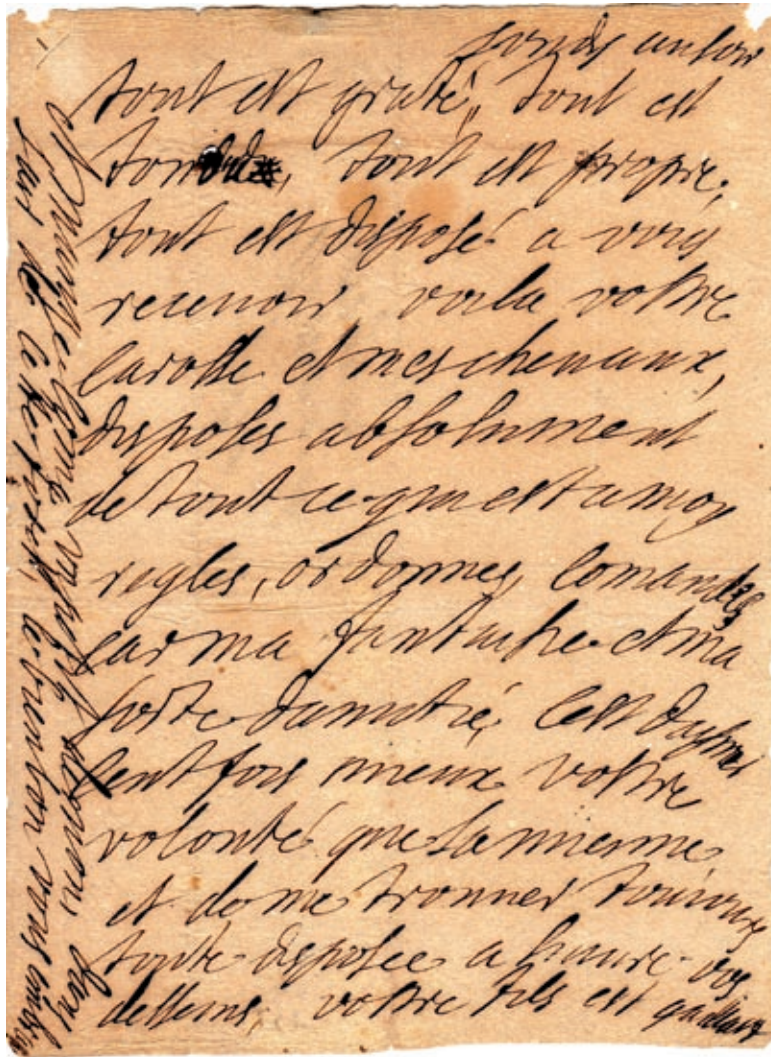 lundy au soir
tout est graté, tout est
tondu, tout est propre,
tout est disposé a vous
receuoir voila vostre
carosse et mes cheuaux,
disposes absolument
de tout ce qui est a moy
regles, ordonnes, comandes
car ma fantaisie et ma
sorte damitié cest daymer
cent fois mieux vostre
volonté que la mienne
et de me trouuer toujours
toute disposee a suiure vos
desseins, vostre fils est gaillard
le bien bon vous